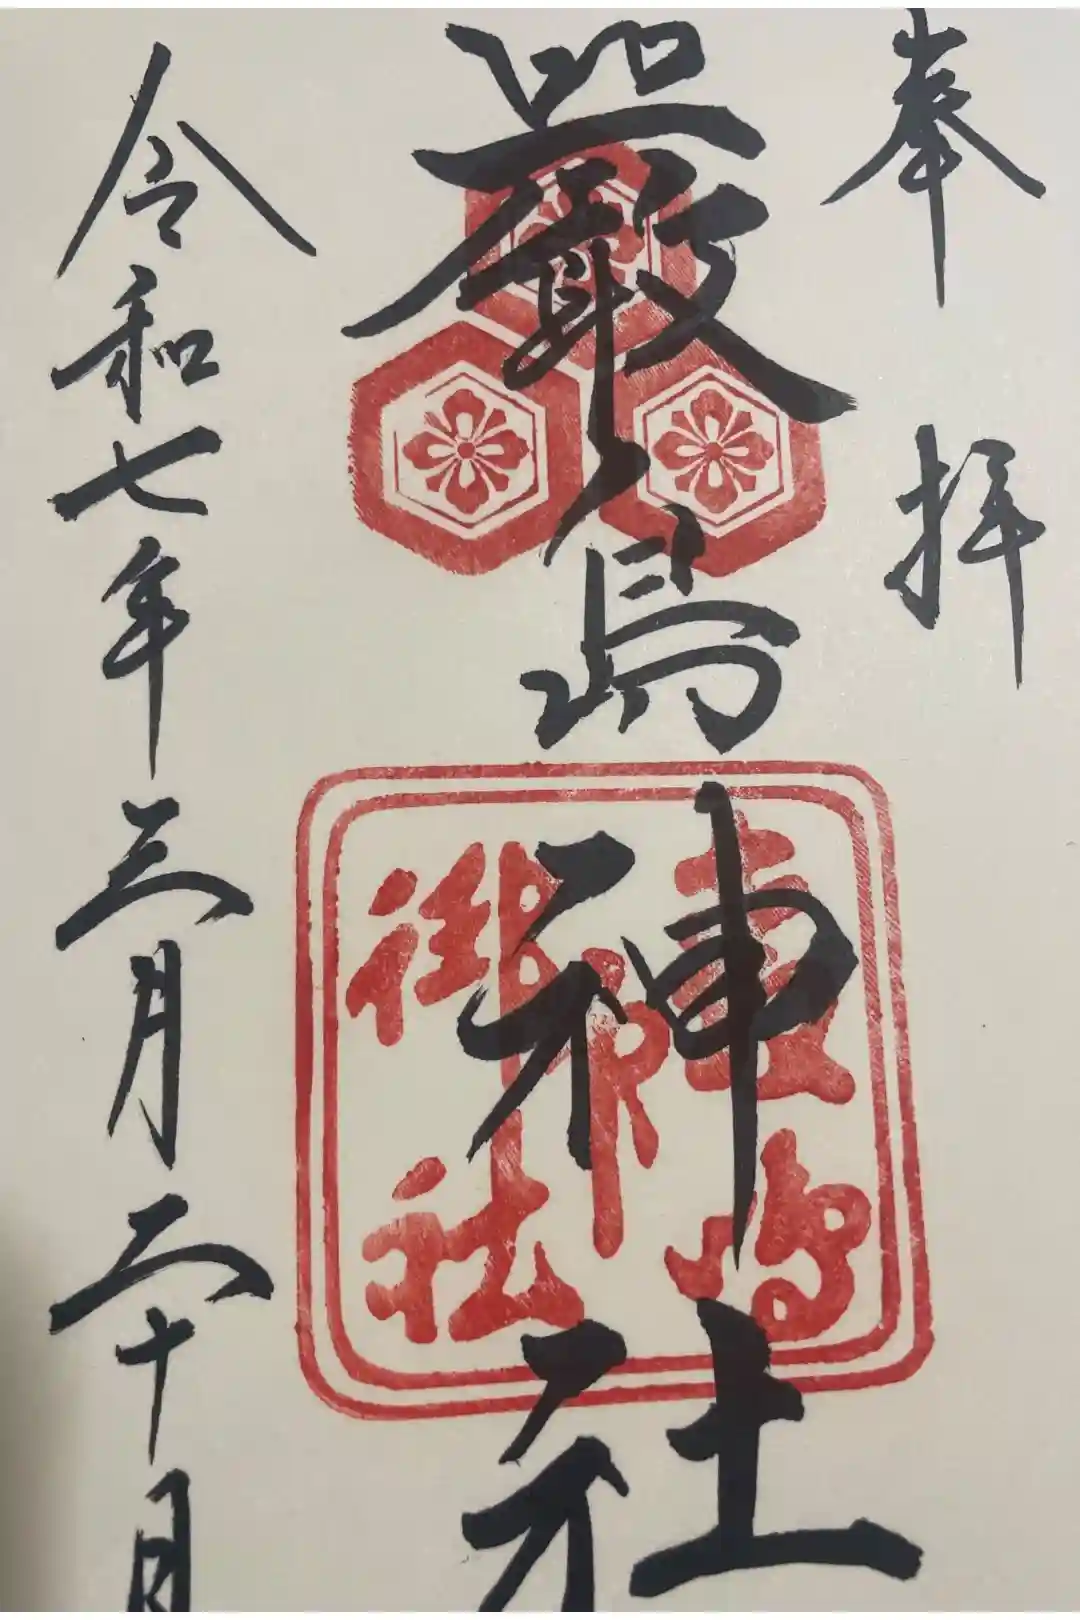 奉拝
嚴島神社
御社
令和七年三月二十日